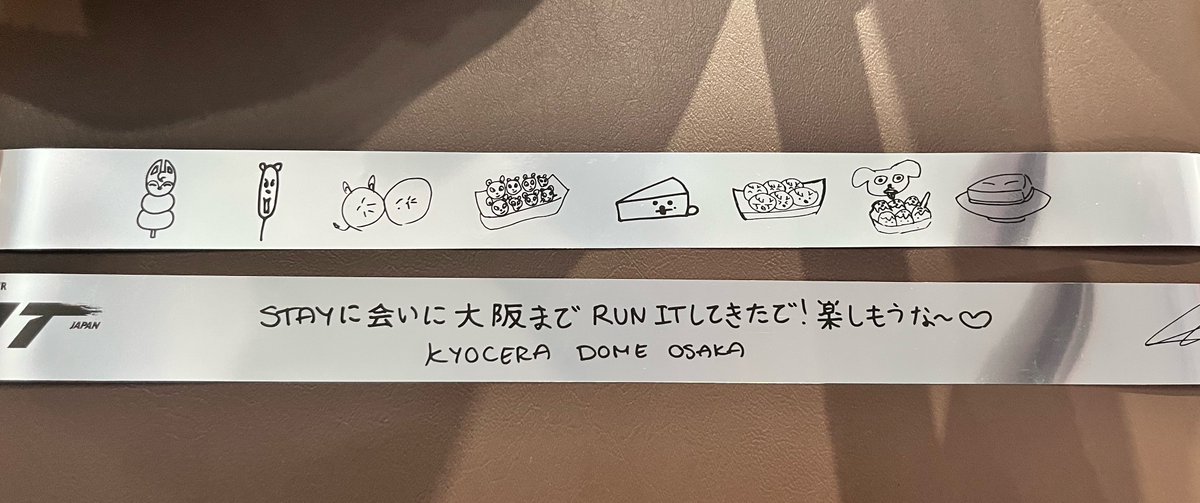 STAYに会いに大阪まで RUN ITしてきたで！楽しもうな〜♡
KYOCERA DOME OSAKA
JAPAN